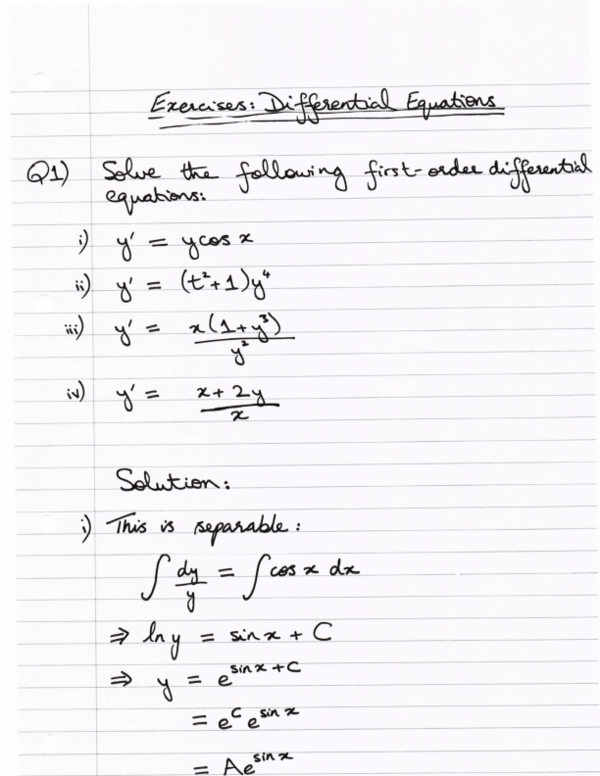 Exercises: Differential Equations
Q1) Solve the following first-order differential
equations:
i) y' = y cos x
ii) y' = (t²+1)y⁴
iii) y' = x(1+y³)/y²
iv) y' = x+2y/x
Solution:
i) This is separable:
∫ dy/y = ∫ cos x dx
⇒ ln y = sin x + C
⇒ y = e^(sin x + C)
= e^C e^(sin x)
= Ae^(sin x)